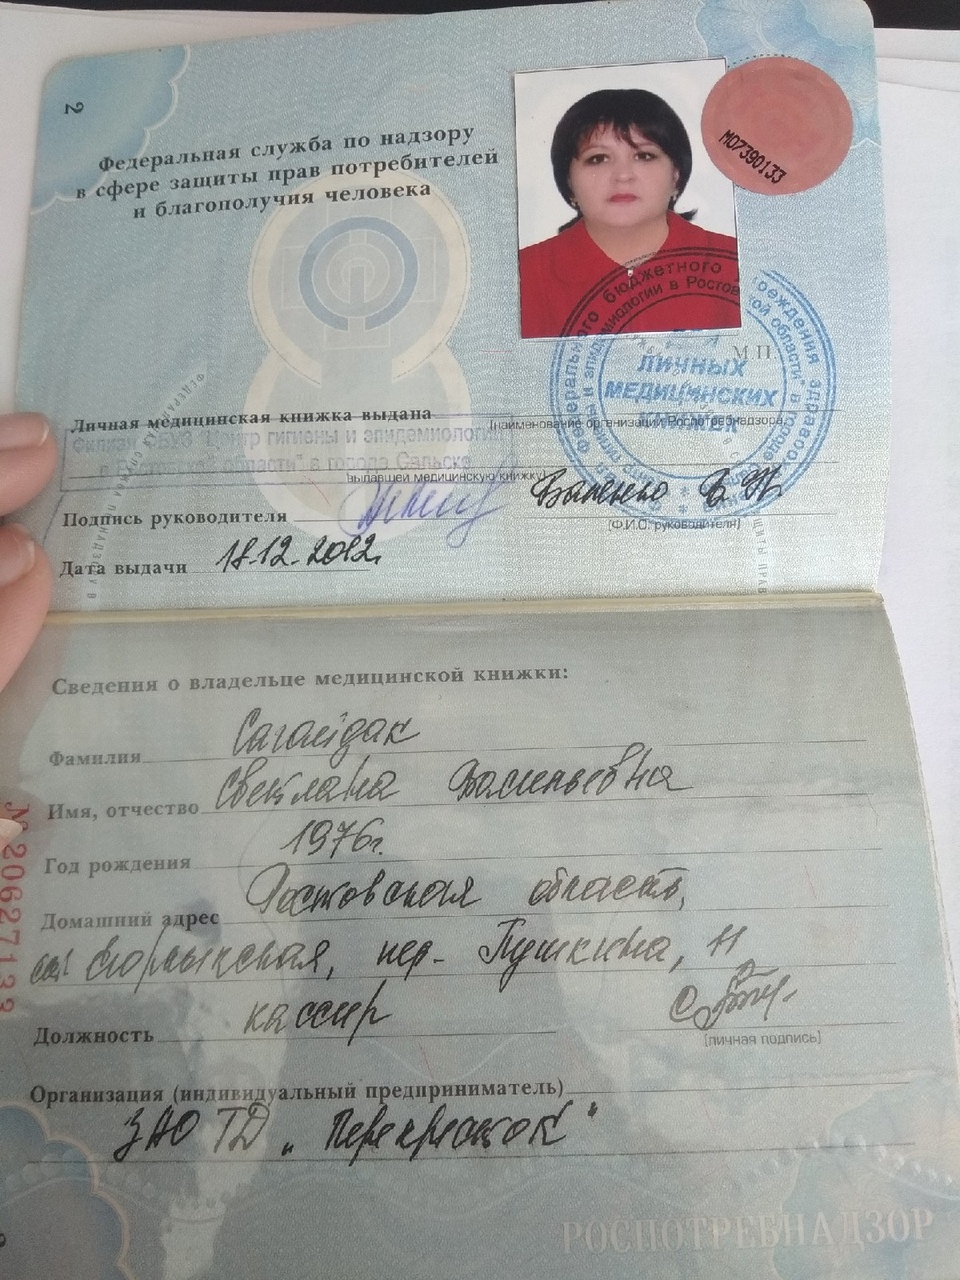 2
Федеральная служба по надзору
в сфере защиты прав потребителей
и благополучия человека
М07390133
М П
ЛИЧНЫХ
МЕДИЦИНСКИХ
Личная медицинская книжка выдана
(наименование организации Роспотребнадзора,
Филиал ФБУЗ "Центр гигиены и эпидемиологии
в Ростовской области" в городе Сальске
выдавшей медицинскую книжку)
Подпись руководителя
(Ф.И.О. руководителя)
Дата выдачи 18.12.2012
Сведения о владельце медицинской книжки:
Фамилия Сагайдак
Имя, отчество Светлана Васильевна
Год рождения 1976г.
Домашний адрес Ростовская область,
пер. Пушкина, 11
Должность кассир
(личная подпись)
Организация (индивидуальный предприниматель)
ЗАО ТД "Перекресток"
РОСПОТРЕБНАДЗОР